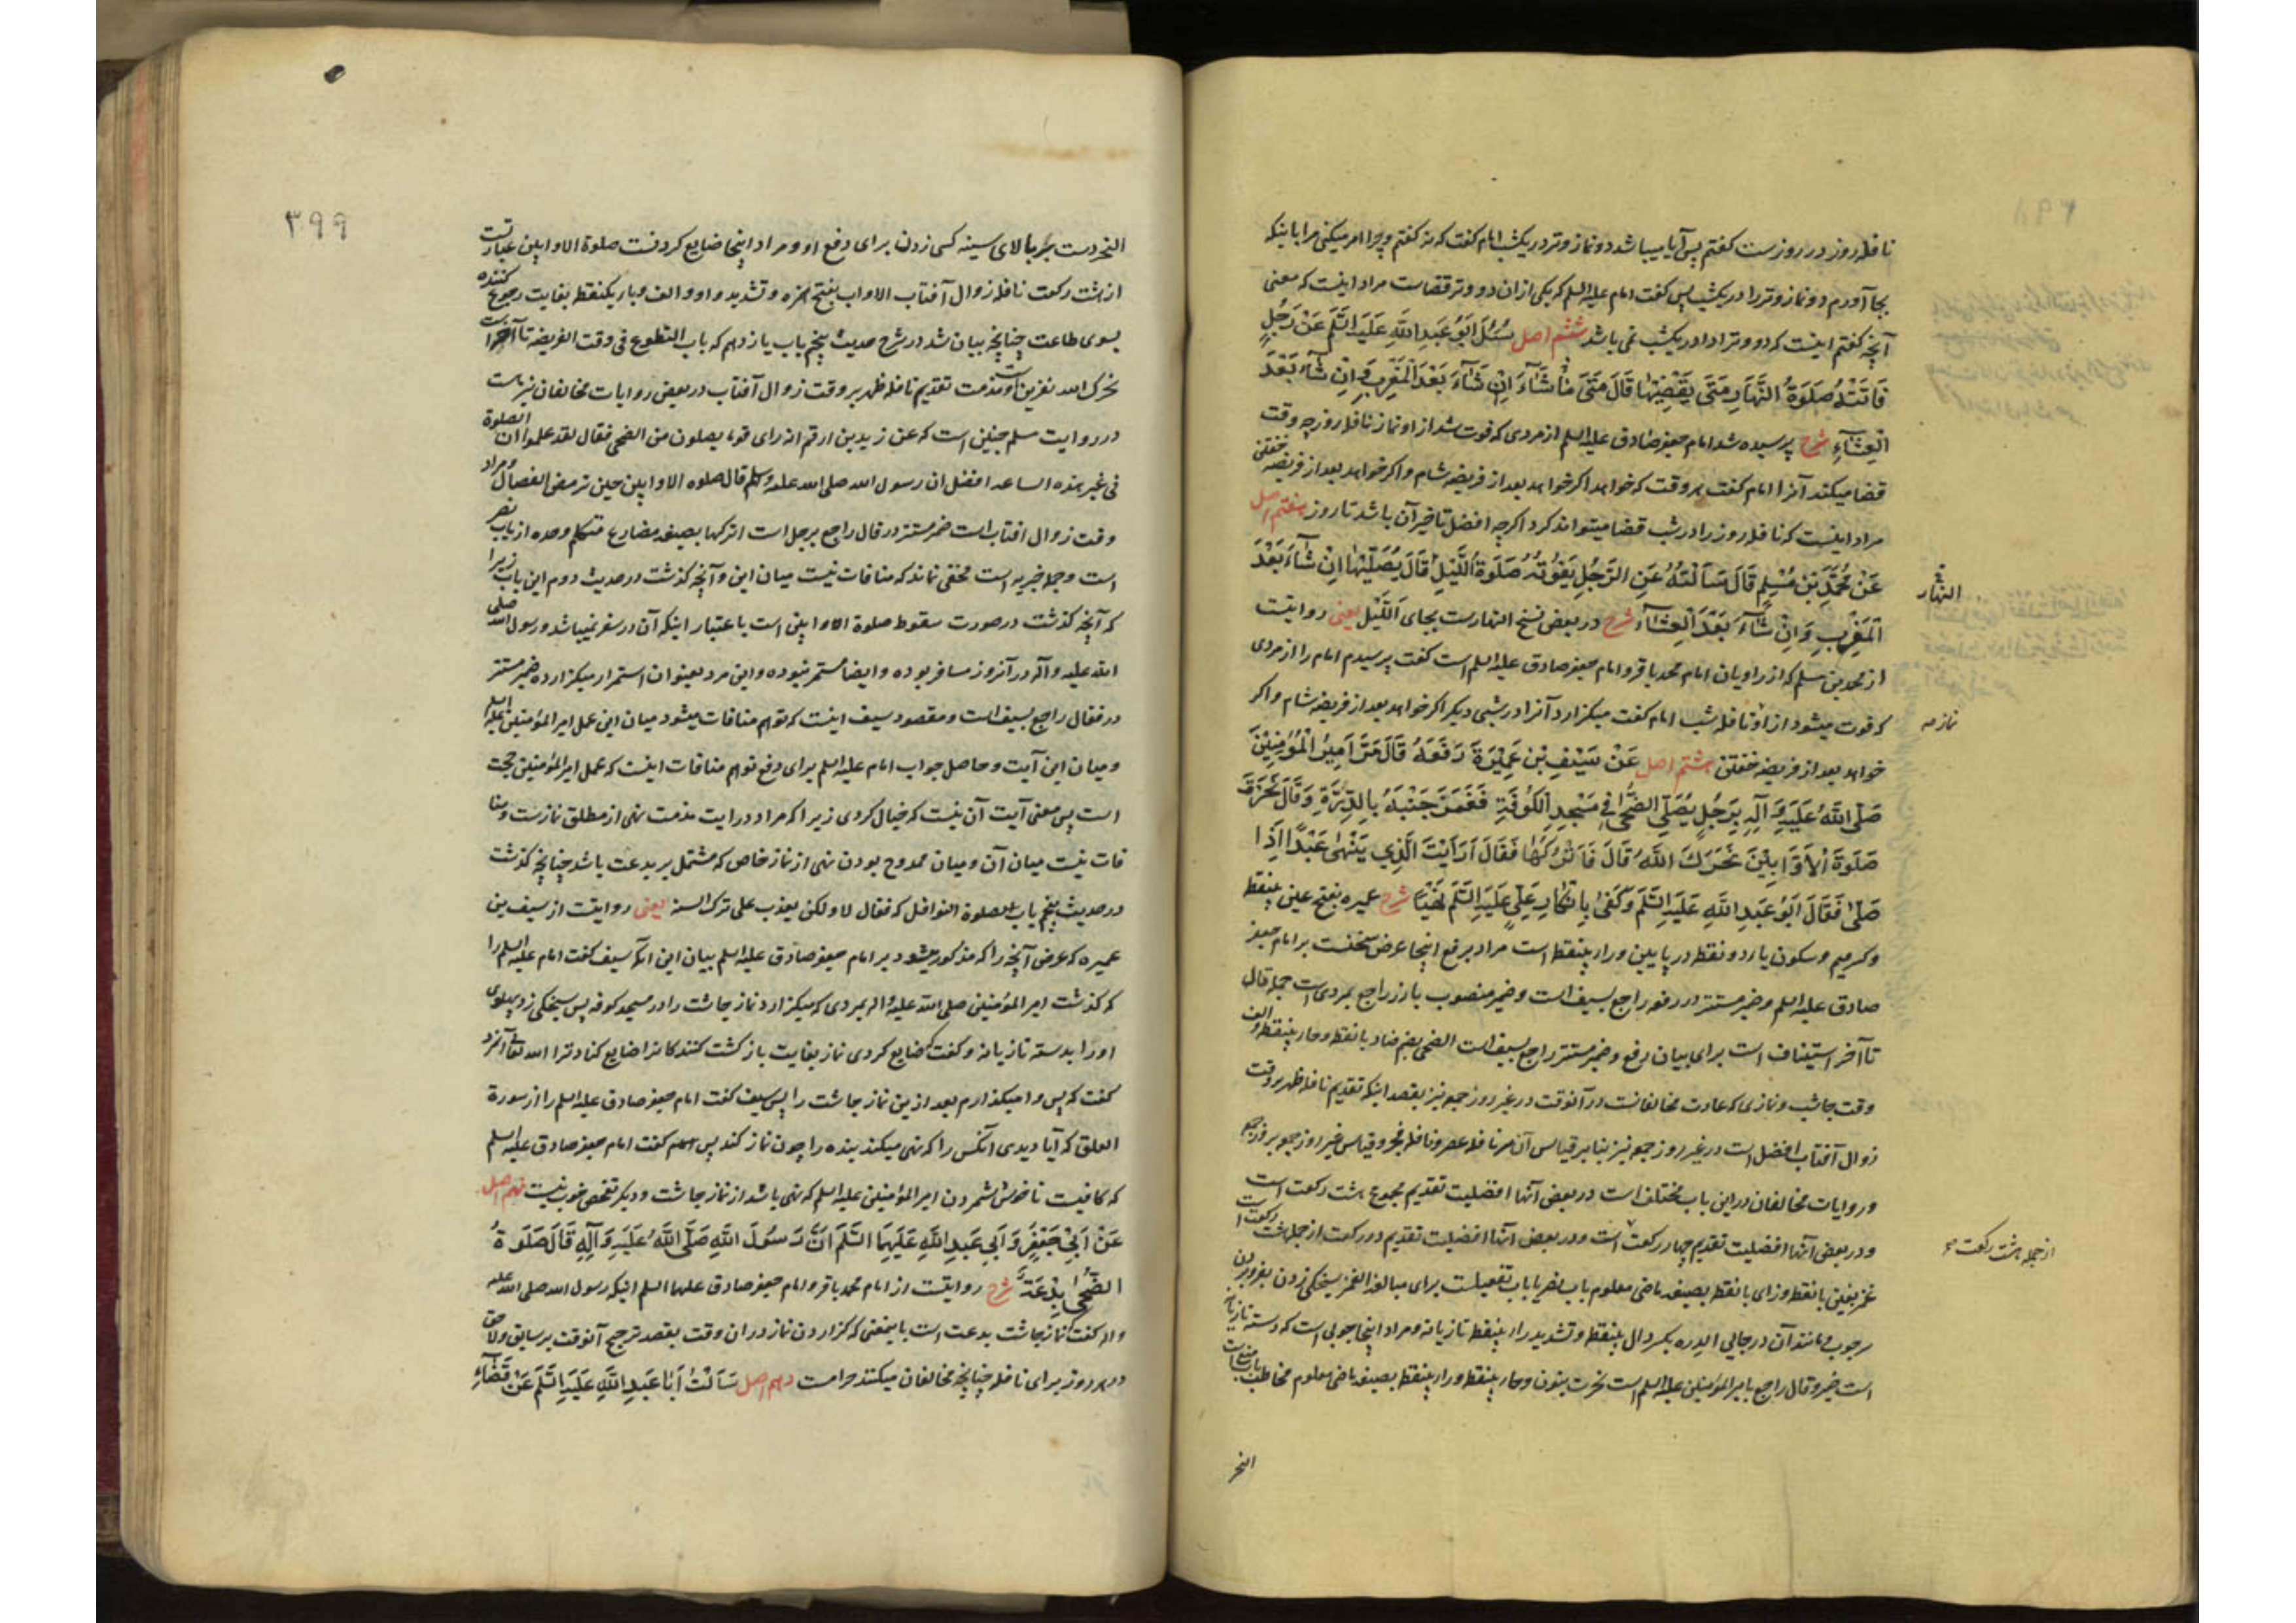 نافله روز در روزست کفتم پس آیا میباشد دو نماز وتر در یکشب امام کفت که نه کفتم و چرا امر میکنی مرا باینکه
بجا آورم دو نماز وتر را در یکشب پس کفت امام علیه السلم که یکی ازان دو وتر قضاست مراد اینست که معنی
آنچه کفتم اینست که دو وتر ادا در یکشب نمی باشد ششم اصل سُئِلَ اَبُو عَبدِ اللهِ عَلَیهِ السَّلَم عَنْ رَجُلٍ
فَاتَتْهُ صَلَوةُ النَّهَارِ مَتَی یَقْضِیْهَا قَالَ مَتَی مَا شَآءَ اِنْ شَآءَ بَعْدَ المَغْرِبِ وَ اِنْ شَآءَ بَعْدَ
الْعِشَآءِ شرح پرسیده شد امام جعفر صادق علیه السلم از مردی که فوت شد از او نماز نافله روز چه وقت
قضا میکند آنرا امام کفت هر وقت که خواهد اکر خواهد بعد از فریضه شام و اکر خواهد بعد از فریضه خفتن
مراد اینست که نافله روز را در شب قضا میتواند کرد اکرچه افضل تاخیر آن باشد تا روز هفتم اصل
عَنْ مُحَمَّدِ بْنِ مُسْلِمٍ قَالَ سَأَلْتُهُ عَنِ الرَّجُلِ یَفُوتُهُ صَلَوةُ اللَّیْلِ قَالَ یُصَلِّیْهَا اِنْ شَآءَ بَعْدَ
الْمَغْرِبِ وَ اِنْ شَآءَ بَعْدَ الْعِشَآءِ شرح در بعض نسخ النهارست بجای اَللَّیْل یعنی روایتست
از محمد بن مسلم که از راویان امام محمد باقر و امام جعفر صادق علیه السلم است کفت پرسیدم امام را از مردی
که فوت میشود از او نافله شب امام کفت میکزارد آنرا در شبی دیکر اکر خواهد بعد از فریضه شام و اکر
خواهد بعد از فریضه خفتن هشتم اصل عَنْ سَیْفِ بْنِ عَمِیْرَةَ رَفَعَهُ قَالَ مَرَّ اَمِیْرُ الْمُؤْمِنِیْنَ
صَلَّی اللهُ عَلَیهِ وَ آلِهِ بِرَجُلٍ یُصَلِّی الضُّحَی فِی مَسْجِدِ الْکُوفَةِ فَغَمَزَ جَنْبَهُ بِالدِّرَّةِ وَ قَالَ نَحَرْتَ
صَلَوةَ الْاَوَّابِیْنَ نَحَرَكَ اللهُ قَالَ فَاَتْرُكُهَا فَقَالَ اَرَاَیْتَ الَّذِی یَنْهَی عَبْدًا اِذَا
صَلَّی فَقَالَ اَبُو عَبدِ اللهِ عَلَیهِ السَّلَم وَ کَفَی بِاِنْکَارِ عَلِیٍّ عَلَیهِ السَّلَم نَهْیًا شرح عمیره بفتح عین بینقطه
و کسر میم و سکون یا دو نقطه در پایین و راء بینقطه است مراد برفع اینجا عرض سخنست بر امام جعفر
صادق علیه السلم و ضمیر مستتر در رفعه راجع بسیفست و ضمیر منصوب بارز راجع بمردی است جمله قال
تا آخر استیناف است برای بیان رفع و ضمیر مستتر راجع بسیف است الضحی بضم ضاد با نقطه و حاء بینقطه و الف
وقت چاشت و نمازی که عادت مخالفانست در آنوقت در غیر روز جمعه نیز بقصد اینکه تقدیم نافله ظهر بر وقت
زوال آفتاب افضل است در غیر روز جمعه نیز بنابر قیاس آن مر نافله عصر و نافله فجر و قیاس غیر روز جمعه بر روز جمعه
و روایات مخالفان در این باب مختلف است در بعض آنها افضلیت تقدیم مجموع هشت رکعت است
و در بعض آنها افضلیت تقدیم چهار رکعت است و در بعض آنها افضلیت تقدیم دو رکعت از جمله هشت رکعت است
غمز بغین با نقطه و زای با نقطه بصیغه ماضی معلوم باب ضرب یا باب تفعیلست برای مبالغه الغمز سیخکی زدن بفرو بردن
سرچوب و مانند آن در جایی الدره بکسر دال بینقطه و تشدید راء بینقطه تازیانه و مراد اینجا چوبی است که دسته تازیانه
است ضمیر و قال راجع بامیر المؤمنین علیه السلم است نحرت بنون و حاء بینقطه و راء بینقطه بصیغه ماضی معلوم مخاطب باب منع است
النهار
نماز صه
از جمله هشت رکعت
النحر
۳۹۹
النحر دست بر بالای سینه کسی زدن برای دفع او و مراد اینجا ضایع کردنست صلوة الاوابین عبارتست
از هشت رکعت نافله زوال آفتاب الاواب بفتح همزه و تشدید واو و الف و باء یکنقطه بغایت رجوع کننده
بسوی طاعت چنانچه بیان شد در شرح حدیث پنجم باب یازدهم که باب التطوع فی وقت الفریضه تا آخر است
نحرك الله نفرین است و مذمت تقدیم نافله ظهر بر وقت زوال آفتاب در بعض روایات مخالفان نیز هست
در روایت مسلم چنین است که عن زید بن ارقم انه رای قوما یصلون من الضحی فقال لقد علموا ان الصلوة
فی غیر هذه الساعه افضل ان رسول الله صلی الله علیه و سلم قال صلوه الاوابین حین ترمض الفصال و مراد
وقت زوال افتاب است ضمیر مستتر در قال راجع برجل است اترکها بصیغه مضارع متکلم وحده از باب نصر
است و جمله خبریه است مخفی نماند که منافات نیست میان این و آنچه کذشت در حدیث دوم این باب زیرا
که آنچه کذشت در صورت سقوط صلوة الاوابین است باعتبار اینکه آن در سفر نمیباشد و رسول الله صلی
الله علیه و آله در آنروز مسافر بوده و ایضا مستمر نبوده و این مرد بعنوان استمرار میکزارده ضمیر مستتر
در فقال راجع بسیف است و مقصود سیف اینست که توهم منافات میشود میان این عمل امیر المؤمنین علیه السلم
و میان این آیت و حاصل جواب امام علیه السلم برای دفع توهم منافات اینست که عمل امیر المؤمنین حجت
است پس معنی آیت آن نیست که خیال کردی زیرا که مراد در ایت مذمت نهی از مطلق نمازست و منا
فات نیست میان آن و میان ممدوح بودن نهی از نماز خاص که مشتمل بر بدعت باشد چنانچه کذشت
در حدیث پنجم باب صلوة النوافل که فقال لا و لکن یعذب علی ترك السنه یعنی روایتست از سیف بن
عمیره که عرض آنچه را که مذکور میشود بر امام جعفر صادق علیه السلم بیان این آنکه سیف کفت امام علیه السلم را
که کذشت امیر المؤمنین صلی الله علیه و اله بمردی که میکزارد نماز چاشت را در مسجد کوفه پس سیخکی زد پهلوی
او را بدسته تازیانه و کفت که ضایع کردی نماز بغایت بازکشت کنندکانرا ضایع کناد ترا الله تعالی آنمرد
کفت که پس وا میکذارم بعد ازین نماز چاشت را پس سیف کفت امام جعفر صادق علیه السلم را از سورة
العلق که آیا دیدی آنکس را که نهی میکند بنده را چون نماز کند پس کفت امام جعفر صادق علیه السلم
که کافیست ناخوش شمردن امیر المؤمنین علیه السلم که نهی باشد از نماز چاشت و دیکر تفحص خوب نیست نهم اصل
عَنْ اَبِیْ جَعْفَرٍ وَ اَبِی عَبدِ اللهِ عَلَیهِمَا السَّلَم اَنَّ رَسُولَ اللهِ صَلَّی اللهُ عَلَیهِ وَ آلِهِ قَالَ صَلَوةُ
الضُّحَی بِدْعَةٌ شرح روایتست از امام محمد باقر و امام جعفر صادق علیهما السلم اینکه رسول الله صلی الله علیه
و اله کفت که نماز چاشت بدعت است باینمعنی که کزاردن نماز دران وقت بقصد ترجیح آنوقت بر سابق و لاحق
در هر روز برای نافله چنانچه مخالفان میکنند حرامست دهم اصل سَأَلْتُ اَبَا عَبدِ اللهِ عَلَیهِ السَّلَم عَنْ قَضَآءِ